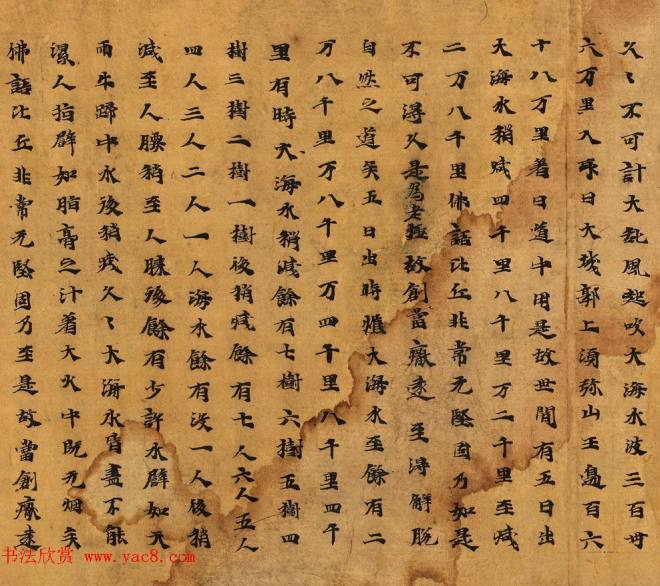 久〻不可計大乱風起吹大海水波三百卅
六万里入取日大城郭上湏弥山王邉百六
十八万里著日道中用是故世間有五日出
大海水稍减四千里八千里万二千里至减
二万八千里佛語比丘非常无堅固乃如是
不可得久是為老極故創當癈逺至得解脱
自然之道矣五日出時催大海水至餘有二
万八千里万八千里万四千里八千里四千
里有時大海水稍减餘有七樹六樹五樹四
樹三樹二樹一樹後稍减餘有七人六人五人
四人三人二人一人海水餘有没一人後稍
减至人腰稍至人膝後餘有少許水辟如天
雨牛蹄中水後稍减久〻大海水皆盡不能
濕人指辟如脂膏之汁着大火中既无烟矣
佛語比丘非常无堅固乃至是故當創癈逺
书法欣赏 www.yac8.com